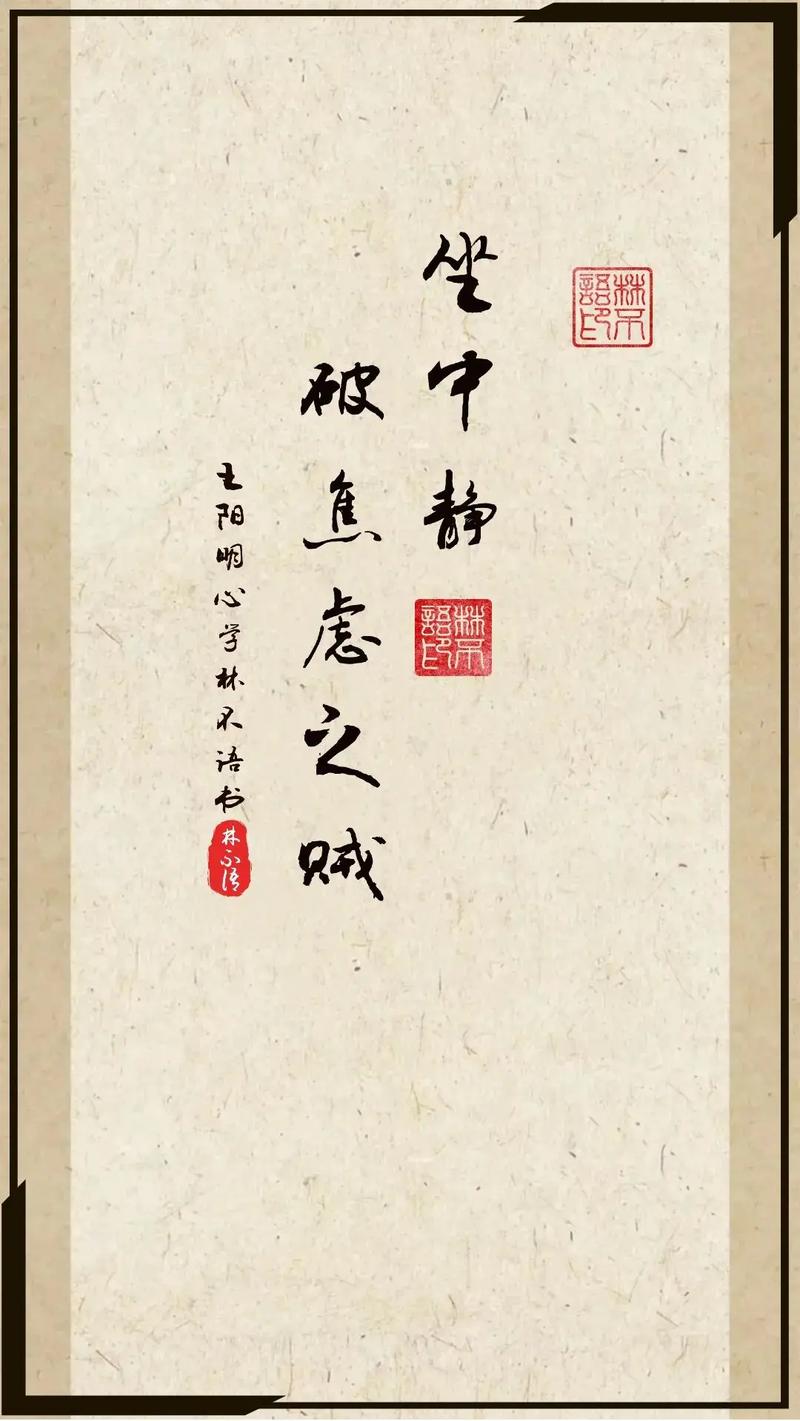 林不語印
坐中静
林不語印
破焦虑之贼
王阳明心学林不语书
林不语